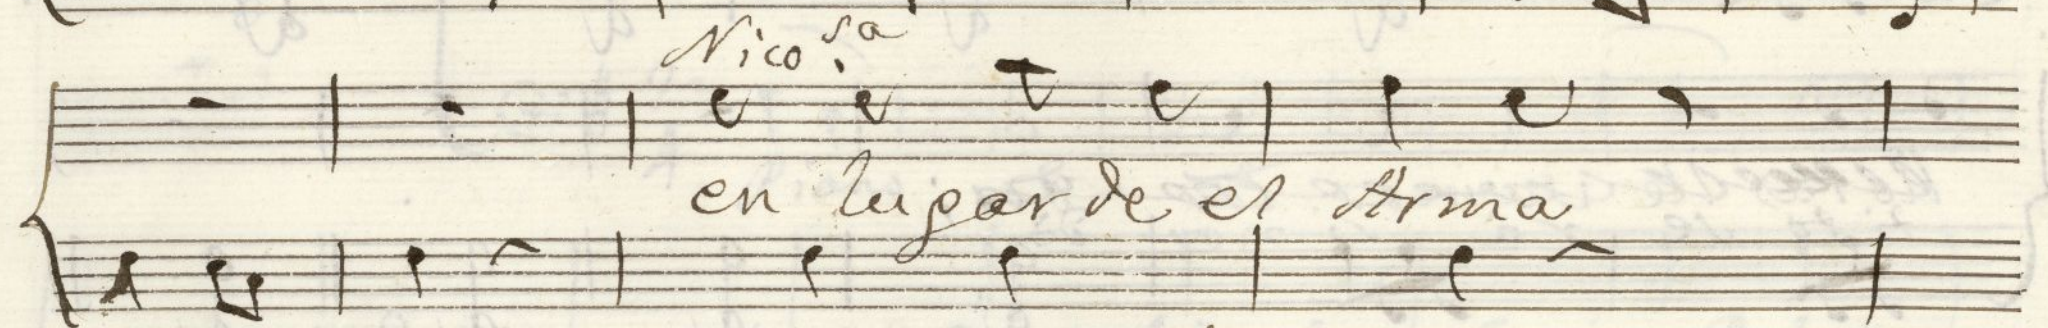 Nico.sa
en lugar de el Arma